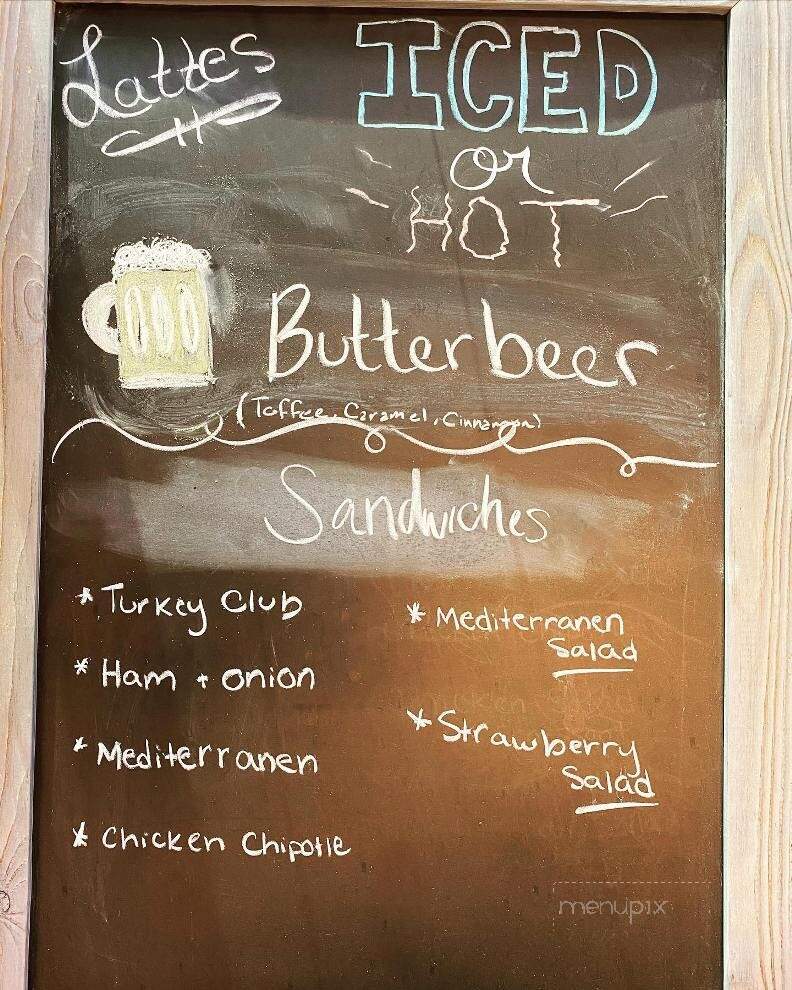 Lattes
ICED
or
HOT
Butterbeer
(Toffee, Caramel, Cinnamon)
Sandwiches
* Turkey Club
* Ham + onion
* Mediterranen
* Chicken Chipotle
* Mediterranen
Salad
* Strawberry
Salad
menupix